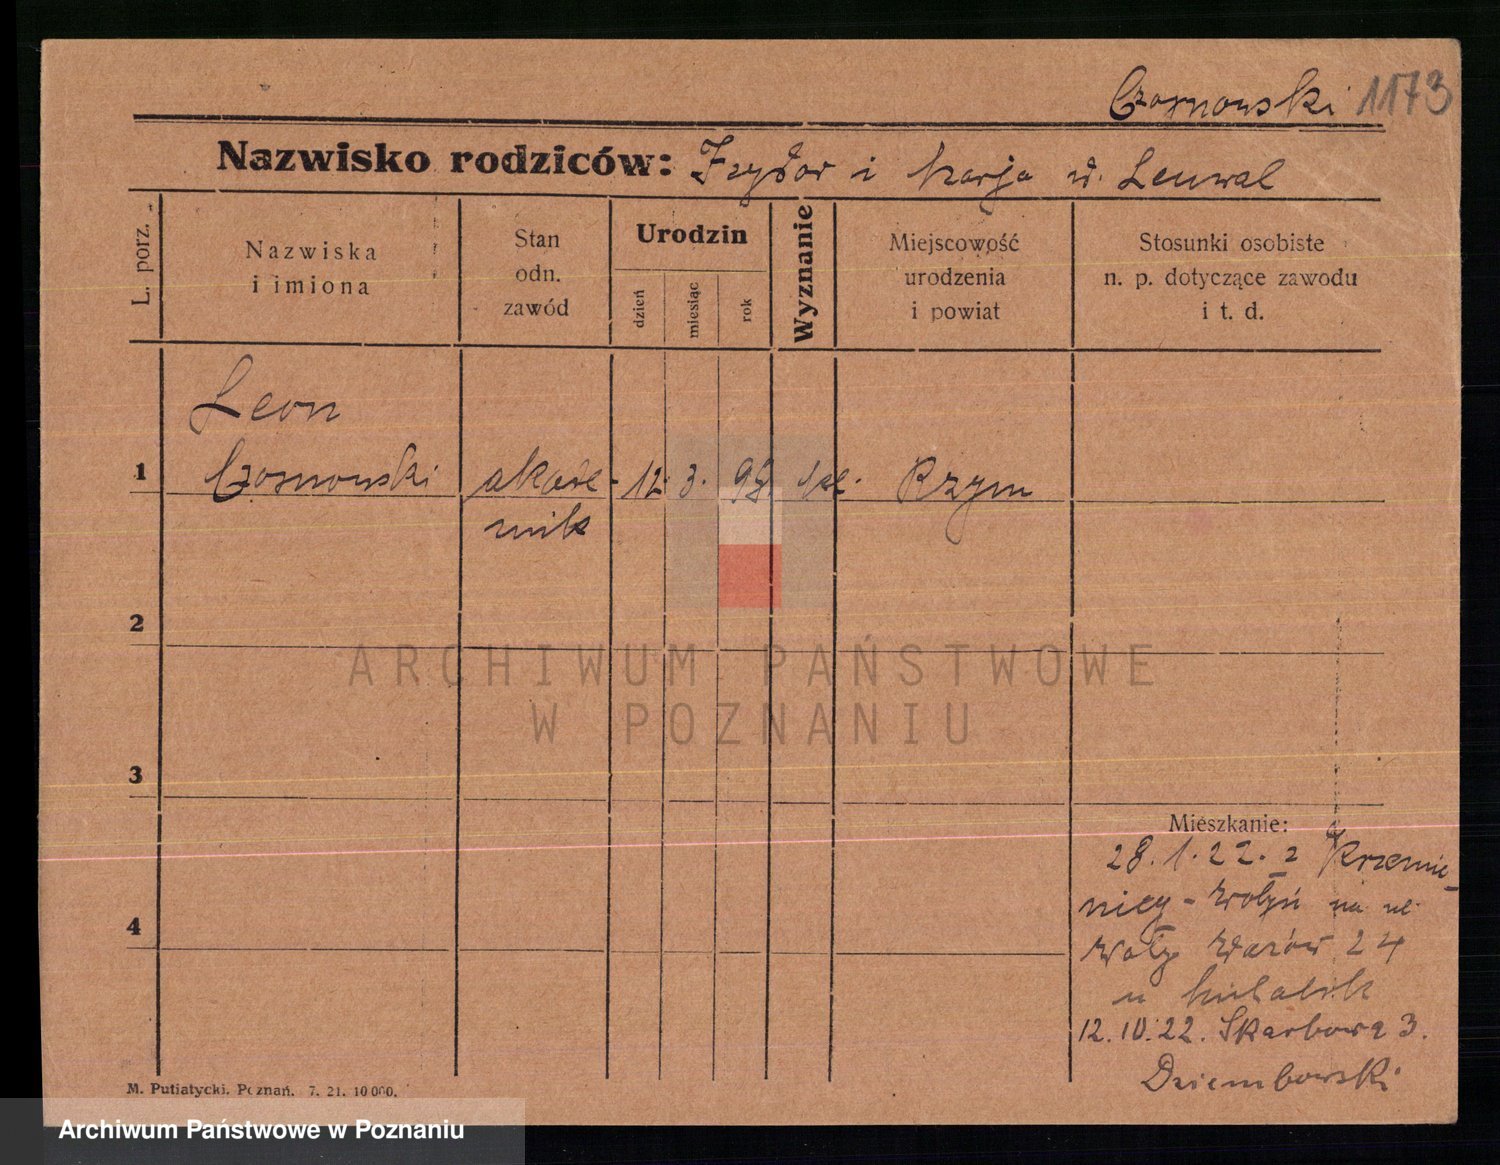 Czosnowski 1173
Nazwisko rodziców: Izydor i Marja u. Leuwal
L. porz.
Nazwiska
i imiona
Stan
odn.
zawód
Urodzin
dzień
miesiąc
rok
Wyznanie
Miejscowość
urodzenia
i powiat
Stosunki osobiste
n. p. dotyczące zawodu
i t. d.
Leon
1 Czosnowski akade- 12. 3. 98 Rzym
mik
2
3
4
ARCHIWUM PAŃSTWOWE
W POZNANIU
Mieszkanie:
28.1.22. z Krzemie-
niec - Wołyń na ul.
Wały Wazów 24
u
12.10.22. Skarbowa 3.
Dziembowski
M. Putiatycki. Poznań. 7. 21. 10 000.
Archiwum Państwowe w Poznaniu